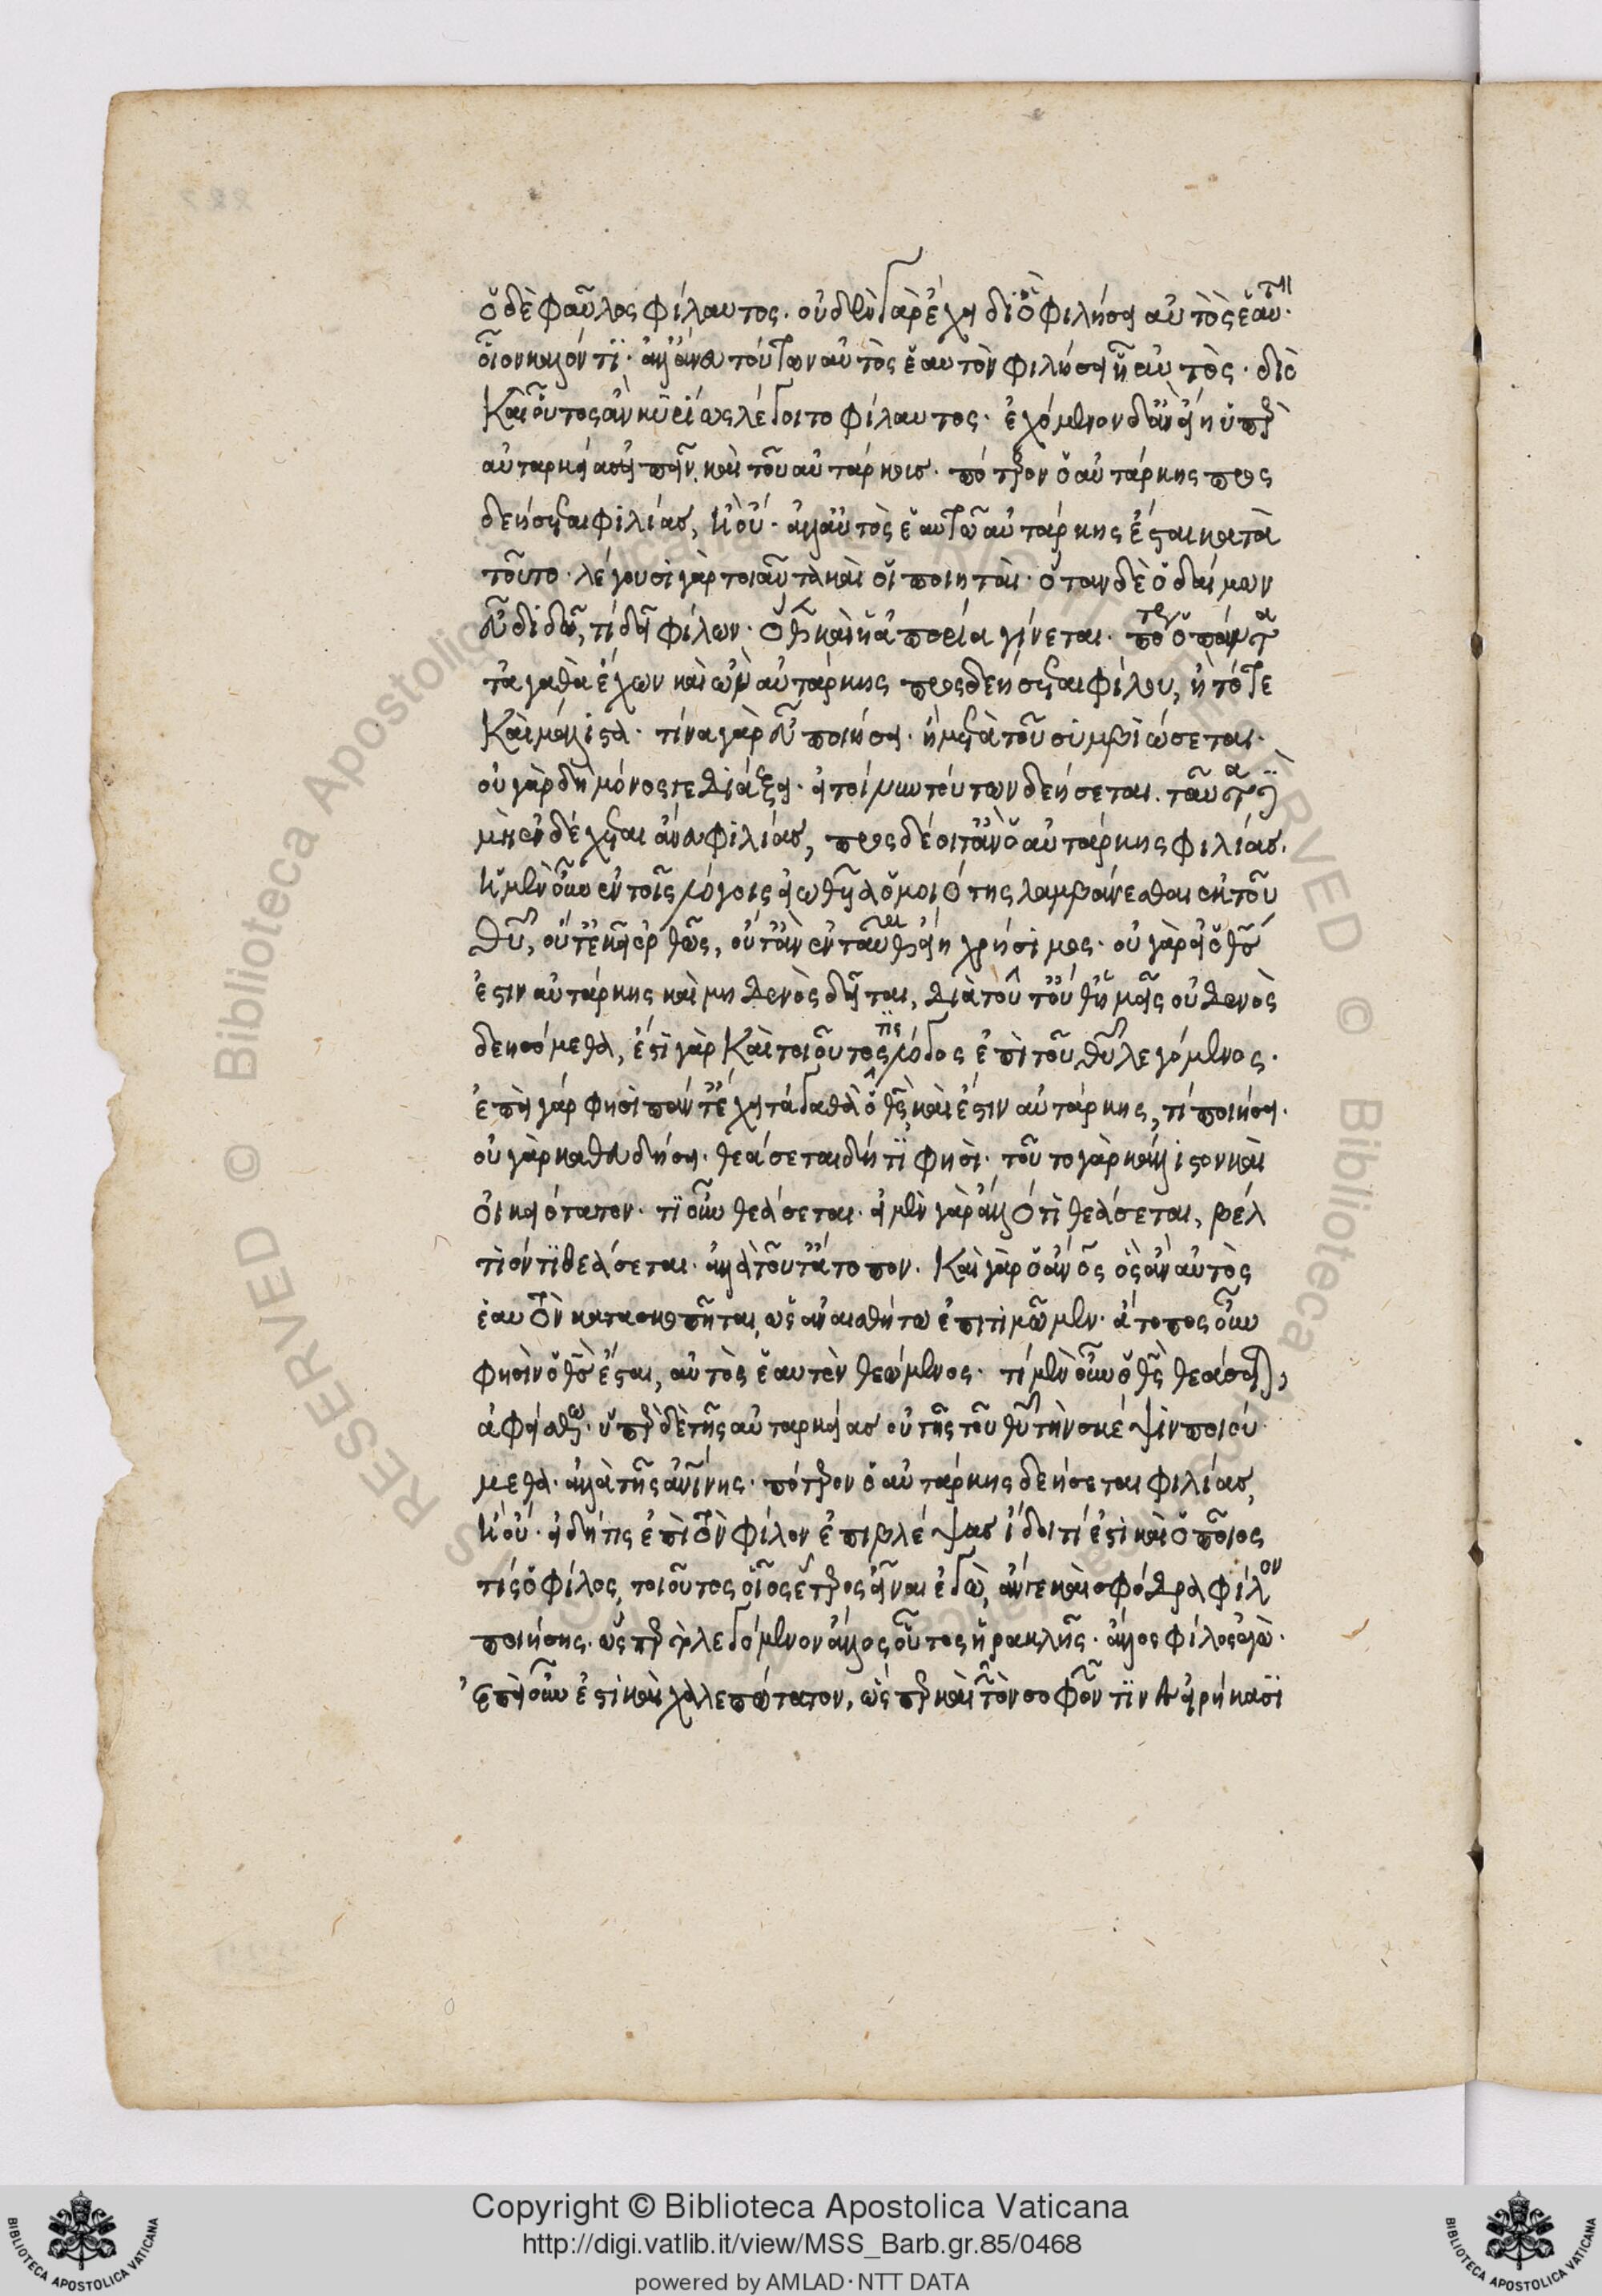 ὁ δὲ φαῦλος φίλαυτος. οὐδὲν γὰρ ἔχει δι' ὃ φιλήσει αὐτὸς ἑαυτὸν
οἷον καλόν τι. ἀλλ' ἄνευ τούτων αὐτὸς ἑαυτὸν φιλήσει ᾗ αὐτός. διὸ
καὶ οὗτος ἂν κυρίως λέγοιτο φίλαυτος. ἐχόμενον δ' ἂν εἴη ὑπὲρ
αὐταρκείας εἰπεῖν καὶ τοῦ αὐτάρκους. πότερον ὁ αὐτάρκης προς
δεήσεται φιλίας, ἢ οὔ. ἀλλ' αὐτὸς ἑαυτῷ αὐτάρκης ἔσται κατὰ
τοῦτο. λέγουσι γὰρ τοιαῦτα καὶ οἱ ποιηταί. ὅταν δὲ ὁ δαίμων
εὖ διδῷ, τί δεῖ φίλων. ὅθεν καὶ ἡ ἀπορία γίνεται. πότερον ὁ πάντα
τἀγαθὰ ἔχων καὶ ὢν αὐτάρκης προσδεήσεται φίλου, ἢ τότε
καὶ μάλιστα. τίνα γὰρ εὖ ποιήσει. ἢ μετὰ τοῦ συμβιώσεται.
οὐ γὰρ δὴ μόνος γε διάξει. εἰ τοίνυν τούτων δεήσεται. ταῦτα δὲ
μὴ ἐνδέχεται ἄνευ φιλίας, προσδέοιτ' ἂν ὁ αὐτάρκης φιλίας.
ἡ μὲν οὖν ἐν τοῖς λόγοις εἰωθυῖα ὁμοιότης λαμβάνεσθαι ἐκ τοῦ
θεοῦ, οὔτ' ἐκεῖ ὀρθῶς, οὔτ' ἂν ἐνταῦθα εἴη χρήσιμος. οὐ γὰρ εἰ ὁ θεός
ἐστιν αὐτάρκης καὶ μηδενὸς δεῖται, διὰ τοῦτο οὐθ' ἡμεῖς οὐδενὸς
δεησόμεθα, ἔστι γὰρ καὶ τοιοῦτός τις λόγος ἐπὶ τοῦ θεοῦ λεγόμενος.
ἐπεὶ γάρ φησι πάντ' ἔχει τἀγαθὰ ὁ θεὸς καὶ ἔστιν αὐτάρκης, τί ποιήσει.
οὐ γὰρ καθευδήσει. θεάσεται δή τι φησί. τοῦτο γὰρ κάλλιστον καὶ
οἰκειότατον. τί οὖν θεάσεται. εἰ μὲν γὰρ ἄλλο τι θεάσεται, βέλ
τιόν τι θεάσεται. ἀλλὰ τοῦτ' ἄτοπον. καὶ γὰρ ὁ ἄνθρωπος ὃς ἂν αὐτὸς
ἑαυτὸν κατασκοπῆται, ὡς ἀναισθήτῳ ἐπιτιμῶμεν. ἄτοπος οὖν
φησὶν ὁ θεὸς ἔσται, αὐτὸς ἑαυτὸν θεώμενος. τί μὲν οὖν ὁ θεὸς θεάσεται,
ἀφείσθω. ὑπὲρ δὲ τῆς αὐταρκείας οὐ τῆς τοῦ θεοῦ τὴν σκέψιν ποιού
μεθα. ἀλλὰ τῆς ἀνθρωπίνης. πότερον ὁ αὐτάρκης δεήσεται φιλίας,
ἢ οὔ. εἰ δή τις ἐπὶ τὸν φίλον ἐπιβλέψας ἴδοι τί ἐστι καὶ ὁποῖος
τίς ὁ φίλος, τοιοῦτος οἷος ἕτερος εἶναι ἐγώ, ἄν γε καὶ σφόδρα φίλον
ποιήσῃς. ὥσπερ τὸ λεγόμενον ἄλλος οὗτος ἡρακλῆς. ἄλλος φίλος ἐγώ.
ἐπεὶ οὖν ἐστὶ καὶ χαλεπώτατον, ὥσπερ καὶ τῶν σοφῶν τινὲς εἰρήκασι